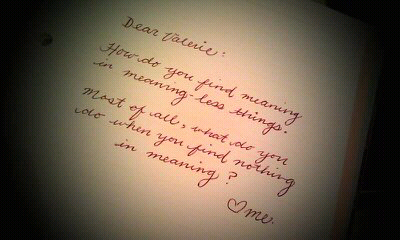 Dear Valerie:
How do you find meaning
in meaning-less things.
Most of all, what do you
do when you find nothing
in meaning?
♡me.